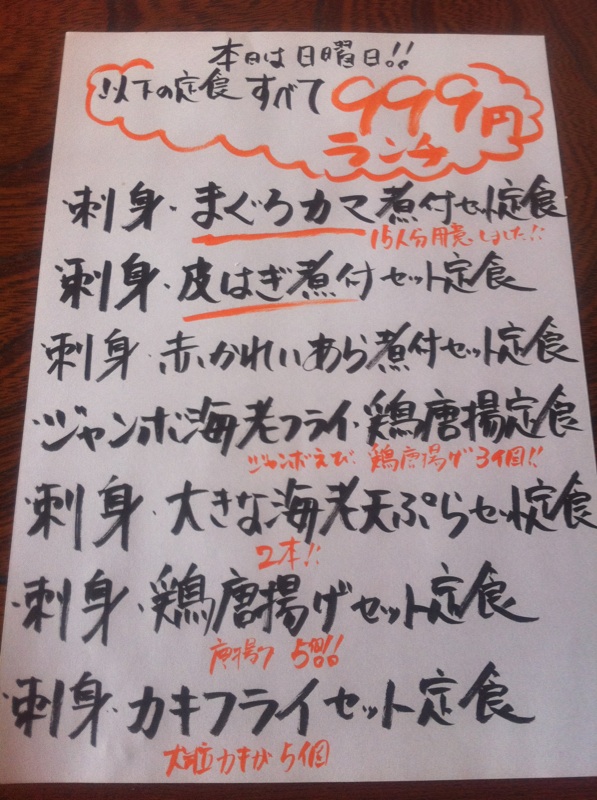 本日は日曜日!!
以下の定食すべて999円
ランチ
刺身・まぐろカマ煮付セット定食
15人分用意しました!!
刺身・皮はぎ煮付セット定食
刺身・赤かれいあら煮付セット定食
ジャンボ海老フライ・鶏唐揚定食
ジャンボえび・鶏唐揚げ3個!!
刺身・大きな海老天ぷらセット定食
2本!!
刺身・鶏唐揚げセット定食
唐揚げ 5個!!
刺身・カキフライセット定食
大粒カキが5個